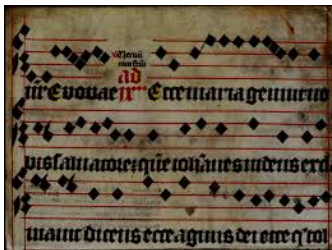 ad
Evovae Ecce maria genuit no
bis saluatorem quē iohānes uidens excla
mauit dicens ecce agnus dei ecce q̄ tol